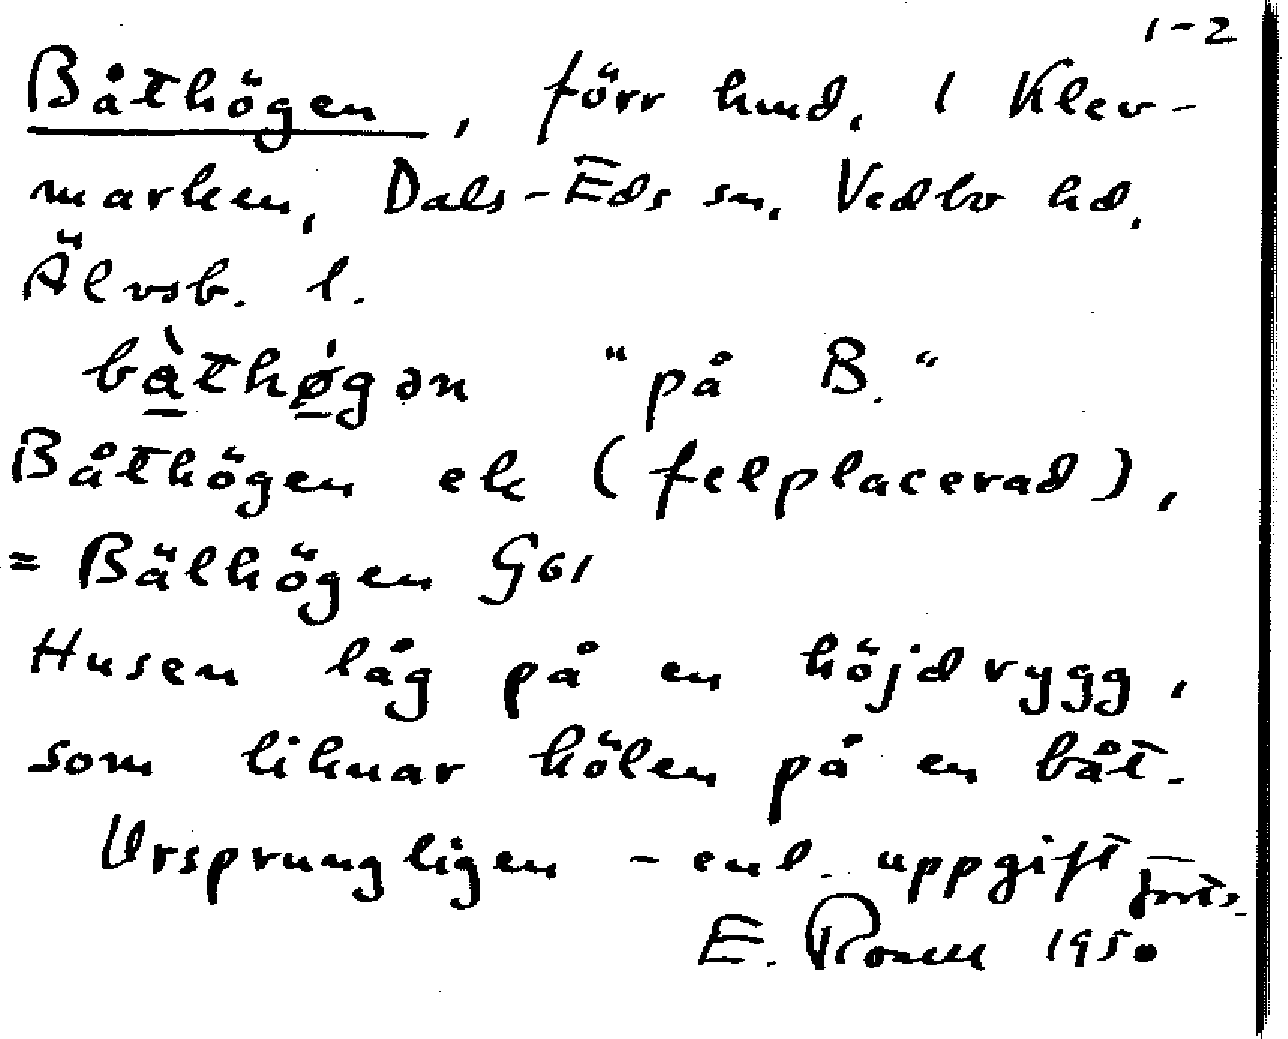 1-2
Båthögen, förr hmd. 1 Klev-
marken, Dals-Eds sn. Vedbo hd.
Älvsb. l.
bàthǿgən "på B."
Båthögen ek (felplacerad),
= Bälhögen G61
Husen låg på en höjdrygg,
som liknar kölen på en båt.
Ursprungligen - enl. uppgift
forts.
E. Rosell 1950